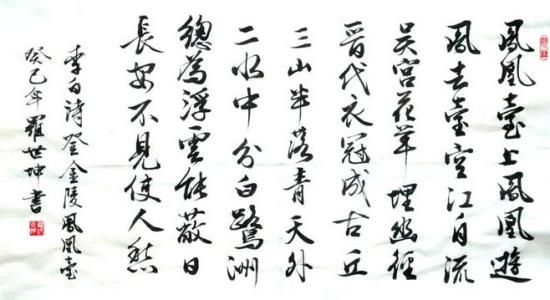 鳳凰臺上鳳凰遊
鳳去臺空江自流
吴宫花草埋幽徑
晉代衣冠成古丘
三山半落青天外
二水中分白鷺洲
總為浮雲能蔽日
長安不見使人愁
李白詩登金陵鳳凰臺
癸巳年羅世坤書